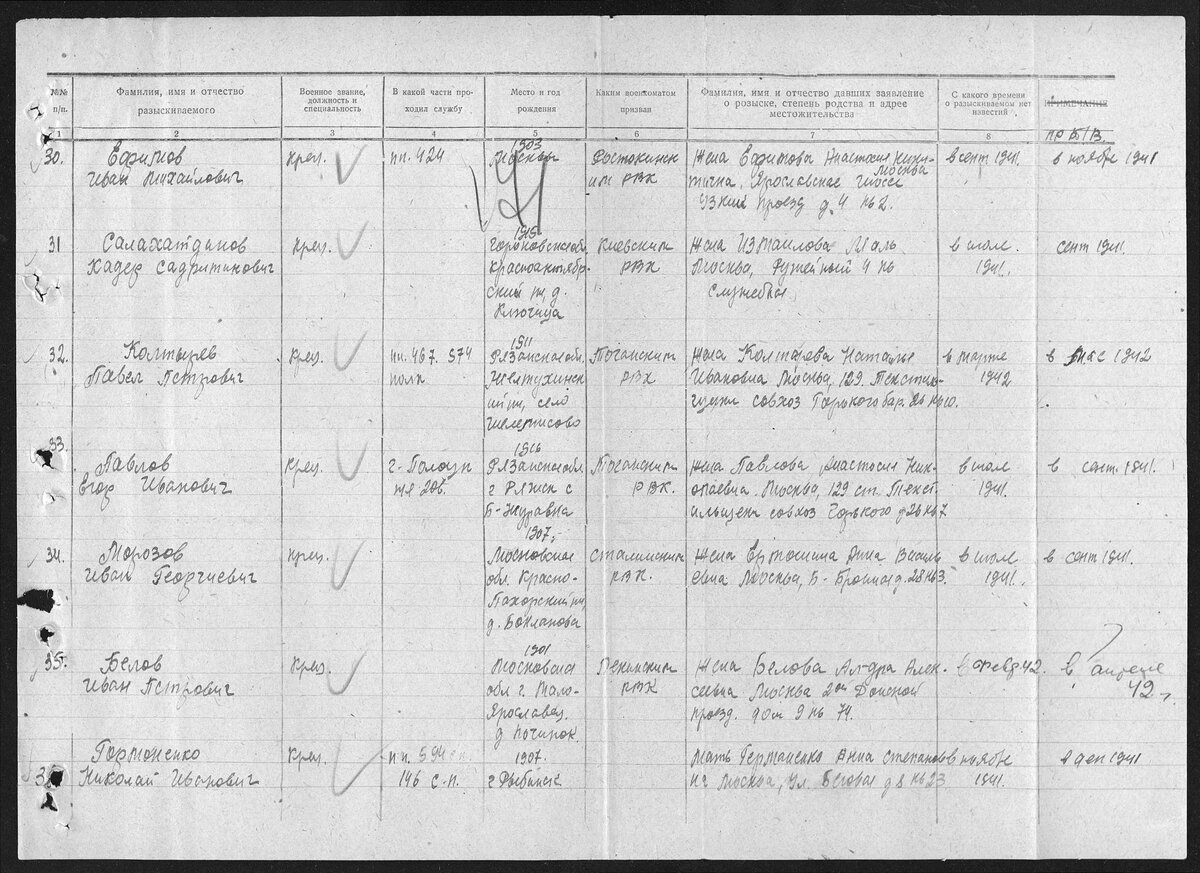 №№ п/п.
Фамилия, имя и отчество разыскиваемого
Военное звание, должность и специальность
В какой части проходил службу
Место и год рождения
Каким военкоматом призван
Фамилия, имя и отчество давших заявление о розыске, степень родства и адрес местожительства
С какого времени о разыскиваемом нет известий
ПРИМЕЧАНИЕ
пр б/в.
1 2 3 4 5 6 7 8
30. Ефимов
Иван Михайлович
кр-ец.
пп. 424
1903
Москва
Ростокинск
им РВК
Жена Ефимова Анастасия Ники-
тична, Москва Ярославское шоссе
Узкий проезд д. 4 кв 2.
в сент 1941.
в ноябре 1941
31 Салахатдинов
Кадер Садритинович
кр-ец.
1915
Горьковская обл
Краснооктябр-
ский р-н, д.
Ключица
Киевским
РВК
Жена Измаилова
Москва, Ружейный 4 кв
служебная
в июле
1941.
сент 1941.
32. Колтырев
Павел Петрович
кр-ец.
пп. 467. 574
полк
1911
Рязанская обл.
село
Таганским
РВК
Жена Наталья
Ивановна Москва, 129. Тексти-
совхоз Горького бар. 26 кв 10.
в марте
1942
в мае 1942
33. Павлов
Егор Иванович
кр-ец.
1916
Рязанская обл
г Ряжск с
Таганским
РВК.
Жена Павлова Анастасия Ник-
олаевна. Москва, 129 ст. Текст-
совхоз Горького 26 кв 7
в июле
1941.
в сент. 1941.
34. Морозов
Иван Георгиевич
кр-ец.
1907
Московская
обл. Красно-
Пахорский р-н,
д. Бакланова
Сталинским
РВК.
Жена Ермошина Анна Василь
евна Москва, Б- Бронная д. 28 кв 3.
в июле
1941.
в сент 1941.
35. Белов
Иван Петрович
кр-ец.
1901
Московская
обл г. Мало-
Ярославец.
д Починок.
Ленинским
РВК
Жена Белова Ал-дра Алек-
сеевна Москва 2ой Донской
проезд. дом 9 кв 74.
с февр 42.
в апреле
42 г.
3 Гормоненко
Николай Иванович
кр-ец.
пп. 594
146 с-п.
1907.
г Рыбинск
Мать Германенко Анна Степанов
на Москва, ул. Беговая д 8 кв 23
в ноябре
1941.
в дек 1941